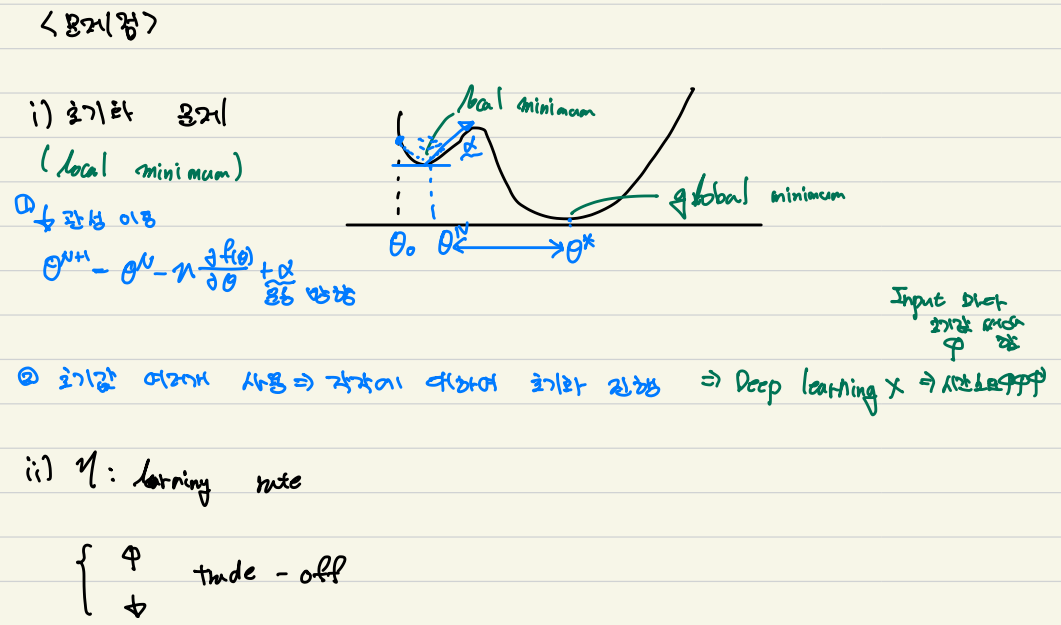 <문제점>
i) 초기화 문제
(local minimum)
local minimum
α
global minimum
θ₀ θᴺ θ*
① ↓ 관성 이동
θᴺ⁺¹ - θᴺ - η ∂f(θ)/∂θ + α
운동 방향
Input 마다
초기값
② 초기값 여러개 사용 ⇒ 각각에 대하여 초기화 진행 ⇒ Deep learning X ⇒ 시간소요↑↑↑
ii) η : learning rate
{ ↑
↓
trade - off